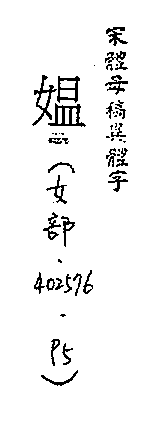 宋體母稿異體字
媼
(女部.402576.P5)